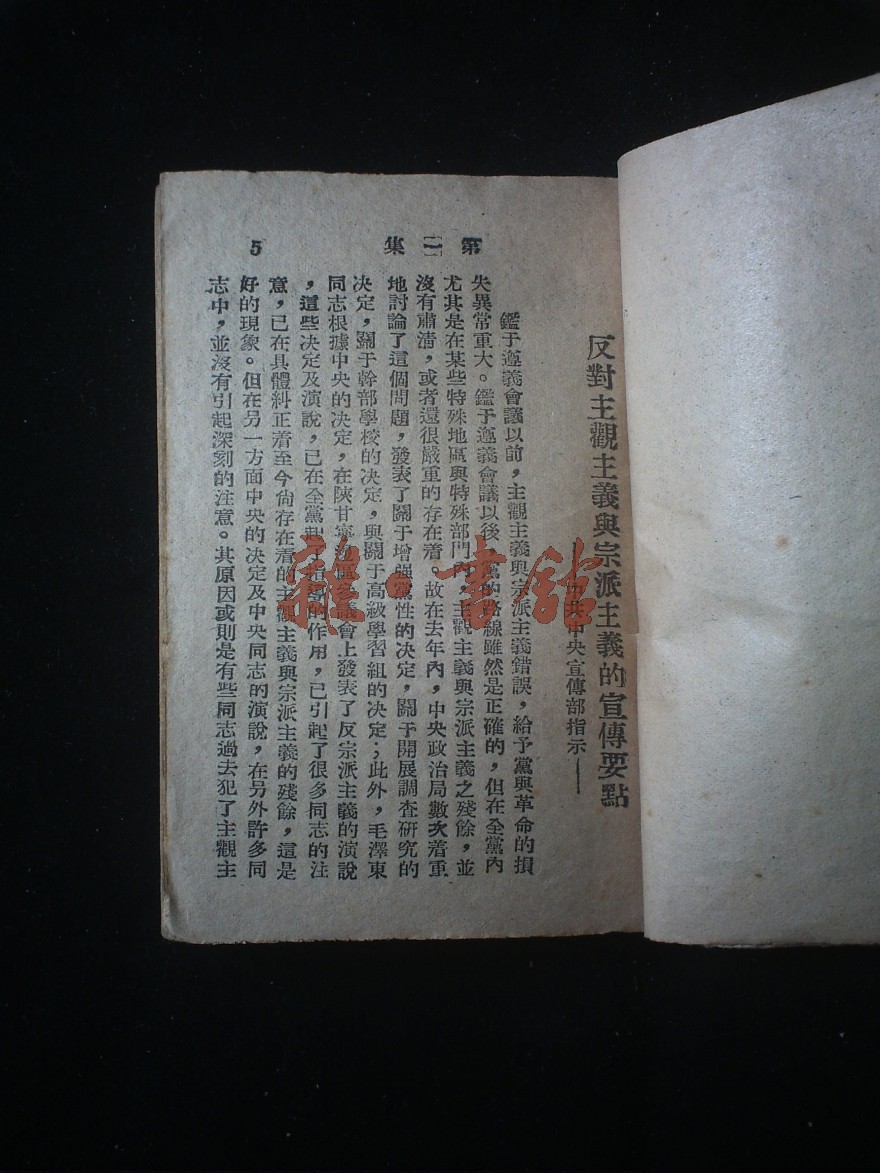 第二集
5
反對主觀主義與宗派主義的宣傳要點
中共中央宣傳部指示——
鑑于遵義會議以前，主觀主義與宗派主義錯誤，給予黨與革命的損
失異常重大。鑑于遵義會議以後，黨的路線雖然是正確的，但在全黨內
尤其是在某些特殊地區與特殊部門內，主觀主義與宗派主義之殘餘，並
沒有肅清，或者還很嚴重的存在着。故在去年內，中央政治局數次着重
地討論了這個問題，發表了關于增强黨性的决定，關于開展調查研究的
决定，關于幹部學校的决定，與關于高級學習組的决定；此外，毛澤東
同志根據中央的决定，在陝甘寧邊區參議會上發表了反宗派主義的演說
，這些决定及演說，已在全黨起了指導的作用，已引起了很多同志的注
意，已在具體糾正着至今尙存在着的主觀主義與宗派主義的殘餘，這是
好的現象。但在另一方面中央的决定及中央同志的演說，在另外許多同
志中，並沒有引起深刻的注意。其原因或則是有些同志過去犯了主觀主
雜·書館